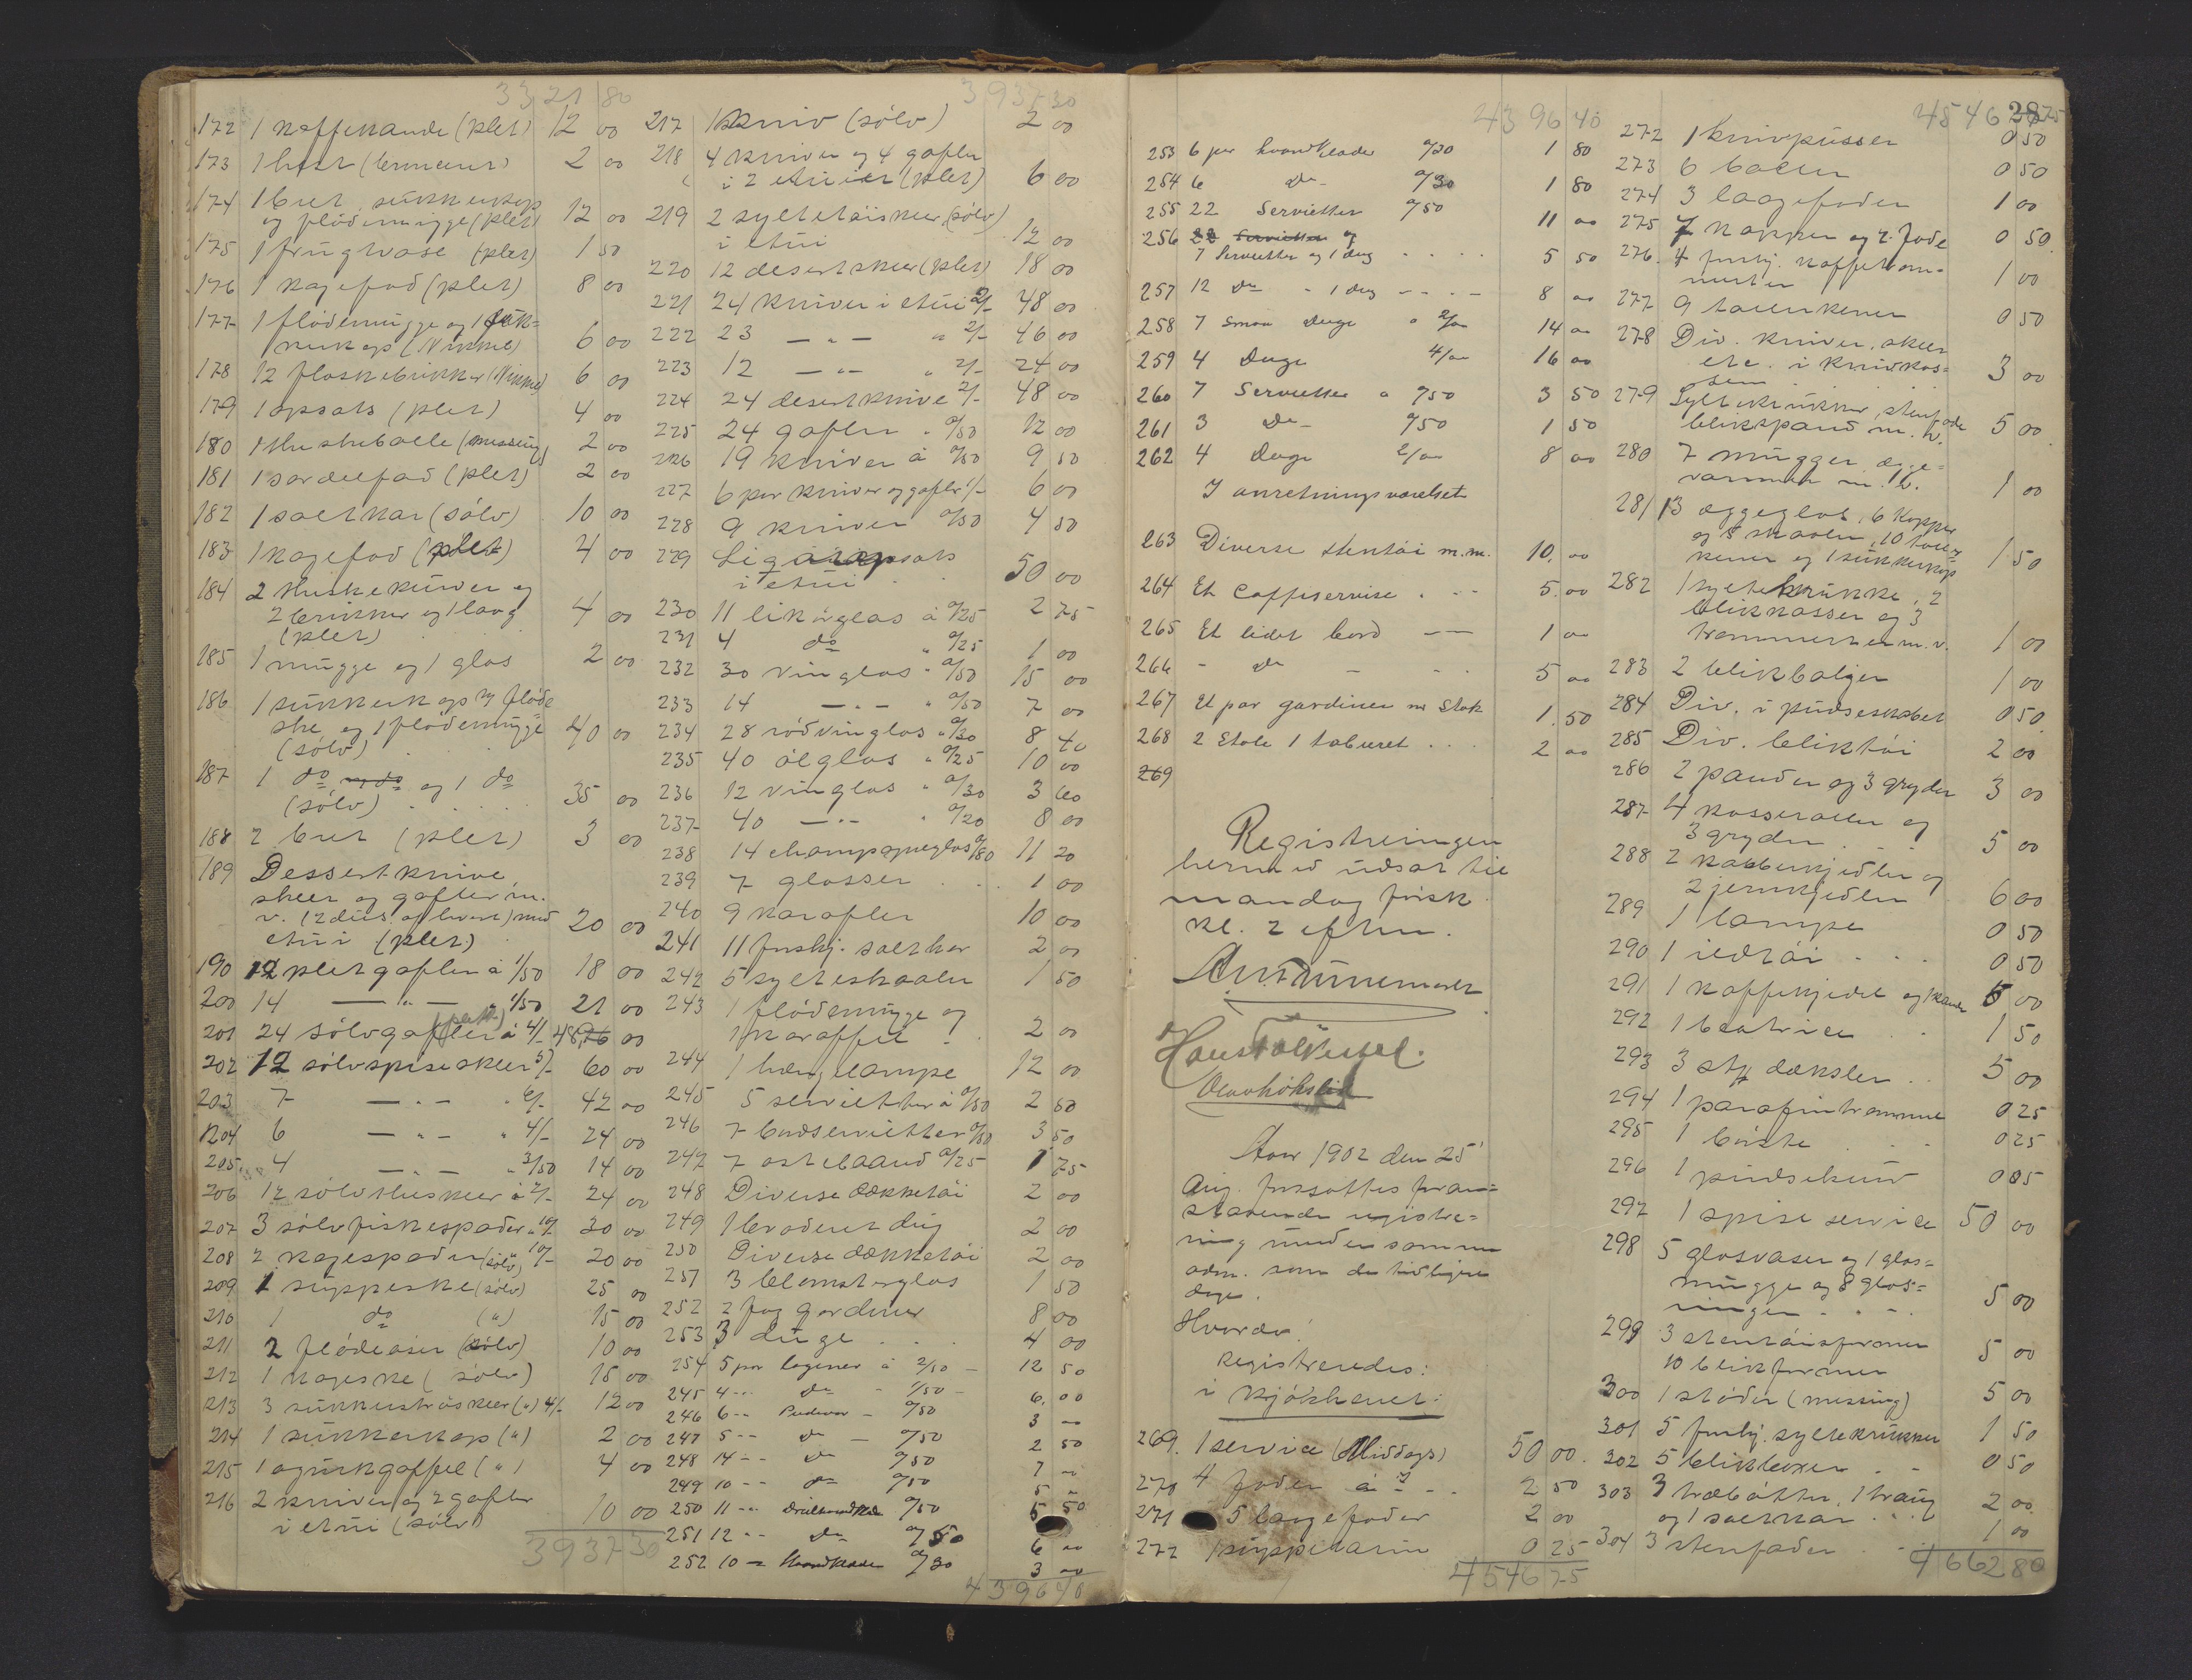 3321 80
172 1 kaffekande (plet) 12 00
173 1 hest (bronceret) 2 00
174 1 bret, sukkerkop
og flødemugge (plet) 12 00
175 1 frugtvase (plet) 1 50
176 1 kagefad (plet) 8 00
177 1 flødemugge og 1 suk=
kerkop (Nikkel) 6 00
178 12 flaskebrikker (Nikkel) 6 00
179 1 opsats (plet) 4 00
180 1 theskebolle (messing) 2 00
181 1 sardelfad (plet) 2 00
182 1 saltkar (sölv) 10 00
183 1 kagefad (plet) 4 00
184 2 kurver og
2 brikker og 1 laag
(plet) 4 00
185 1 mugge og 1 glas 2 00
186 1 sukkerkop og fløde
ske og 1 flødemugge
(sölv) 40 00
187 1 do og 1 do
(sölv) 35 00
188 2 bret (plet) 3 00
189 Dessertknive
skeer og gafler m.
v. (2 dus. af hvert) med
etui (plet) 20 00
190 12 pletgafler à 1/50 18 00
200 14 — " — " 1/50 21 00
201 24 sölvgafler à 4/- 48 00
202 12 sölvspiseskeer 5/- 60 00
203 7 — " — " 6/- 42 00
204 6 — " — " 4/- 24 00
205 4 — " — " 3/50 14 00
206 12 sölvtheskeer à 2/- 24 00
207 3 sölvfiskespader " 10/- 30 00
208 2 kagespader (sölv) 10/- 20 00
209 1 suppeske (sölv) 25 00
210 1 do (") 15 00
211 2 flødeöser (sölv) 10 00
212 1 kageske (sölv) 15 00
213 3 sukkerströskeer (") 4/- 12 00
214 1 sukkerkop (") 2 00
215 1 agurkgaffel (") 4 00
216 2 kniver og 2 gafler
i etui (sölv) 10 00
3937 30
3937 30
217 1 kniv (sölv) 2 00
218 4 kniver og 4 gafler
i 2 etuier (plet) 6 00
219 2 syltetöiskeer (sölv)
i etui 12 00
220 12 desertskeer (plet) 18 00
221 24 kniver i etui 2/- 48 00
222 23 — " — " 2/- 46 00
223 12 — " — " 2/- 24 00
224 24 desertknive 2/- 48 00
225 24 gafler " 0/50 12 00
226 19 kniver à 0/50 9 50
227 6 par kniver og gafler 1/- 6 00
228 9 kniver 0/50 4 50
229 Ligaropsats
i etui 50 00
230 11 likörglas à 0/25 2 75
231 4 do " 0/25 1 00
232 30 vinglas " 0/50 15 00
233 14 — " — " 0/50 7 00
234 28 rödvinglas " 0/30 8 40
235 40 ölglas " 0/25 10 00
236 12 vinglas " 0/30 3 60
237 40 — " — " 0/20 8 00
238 14 champagneglas 0/80 11 20
239 7 glasser 1 00
240 9 karafler 10 00
241 11 forskj. saltkar 2 00
242 5 sylteskaaler 1 50
243 1 flødemugge og
1 karaffel 2 00
244 1 hængelampe 12 00
245 5 servietter à 0/50 2 50
246 7 bordservietter 0/50 3 50
247 7 ostebaand 0/25 1 75
248 Diverse dækketöi 2 00
249 1 broderet dug 2 00
250 Diverse dækketöi 2 00
251 3 blomsterglas 1 50
252 2 fag gardiner 8 00
253 3 duge 4 00
254 5 par lagener à 2/50 12 50
245 4 " do 1/50 6 00
246 6 " Pudevar 0/50 3 00
247 5 " do 0/50 2 50
248 14 " do 0/50 7 00
249 10 " do 0/50 5 00
250 11 " 0/50 5 50
251 12 " do 0/50 6 00
252 10 " Haandklæder 0/30 3 00
4396 40
4396 40
253 6 par haandklæder 0/30 1 80
254 6 do 0/30 1 80
255 22 Servietter 0/50 11 00
256 22 Servietter og
7 Servietter og 1 dug 5 50
257 12 do " 1 dug 8 00
258 7 Smaa duge a 2/00 14 00
259 4 Duge 4/00 16 00
260 7 Servietter a 0/50 3 50
261 3 do 0/50 1 50
262 4 Duge 2/00 8 00
I anretningsværelset
263 Diverse stentöi m.m. 10.00
264 Et Caffeservise 5.00
265 Et lidet bord 1 00
266 - do 5 00
267 Et par gardiner m Stok 1.50
268 2 Stole 1 taburet 2 00
269
Registreringen
hermed udsat til
mandag förstk.
kl. 2 efterm.
Aar 1902 den 25
Aug. fortsattes foran=
staaende registre=
ring under samme
adm. som de tidligere
dage.
Hvorda!
Registreredes:
i Kjökkenet:
269. 1 service (Middags) 50 00
270 4 fader 2 50
271 5 laagefader 2 00
272 1 suppeterrin 0 25
4546 75
4546 75
272 1 knivpudser 0 50
273 6 boller 0 50
274 3 laagefader 1 00
275 7 kopper og 2 fade 0 50
276. 4 forskj. kaffekom=
mer 1 00
277 9 tallerkener 0 50
278 Div. kniver, skeer
etc. i knivkas=
sen 3 00
279 Syltekrukker, stenfade
blikspand m. v. 5 00
280 7 mugger, ægge=
varmer m. v. 1 00
281 13 æggeglas, 6 Kopper
og 8 skaaler, 10 taller
kener og 1 sukkerkop 1 50
282 1 syltekrukke, 2
blikkasser og 3
trommer m. v. 1 00
283 2 blikbalger 1 00
284 Div. i pudseskabet 0 50
285 Div. bliktöi 2 00
286 2 pander og 3 gryder 3 00
287 4 kasseroller og
3 gryder 5 00
288 2 kobberkjedler og
2 jernkjedler 6 00
289 1 lampe 0 50
290 1 ildtöi 0 50
291 1 kaffekjedel og 1 kande 5 00
292 1 beatrice 1 50
293 3 stk dæksler 5 00
294 1 parafintromme 0 25
295 1 börste 0 25
296 1 0 85
297 1 spise service 50 00
298 5 glasvaser og 1 glas=
mugge og 8 glas=
ringer 5 00
299 3 stentöisformer
10 blikformer 5 00
300 1 stöder (messing) 5 00
301 5 forskj. syltekrukker 1 50
302 5 blikboxer 0 50
303 3 træbötter, 1 traug
og 1 saltkar 2 00
304 3 stenfader 1 00
4662 80